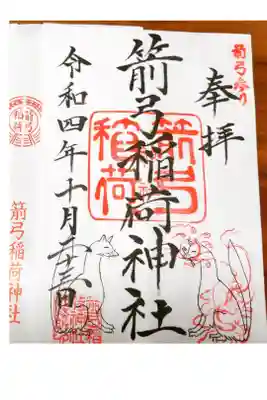 箭弓祭り
奉拝
箭弓稲荷神社
箭弓
稲荷
令和四年十月二十三日
箭弓
稲荷
箭弓稲荷神社